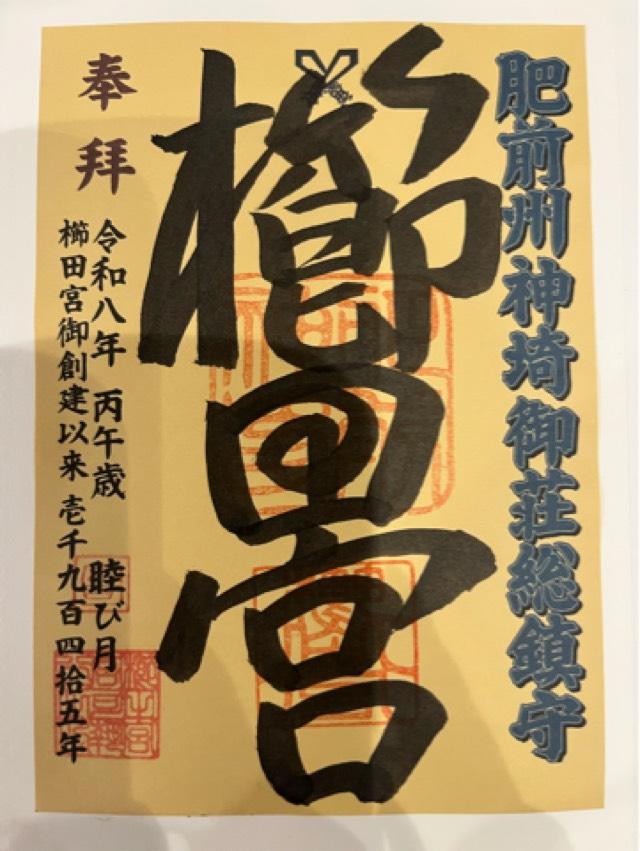 肥前州神埼御荘総鎮守
櫛田宮
奉拝
令和八年 丙午歳 睦び月
櫛田宮御創建以来 壱千九百四拾五年